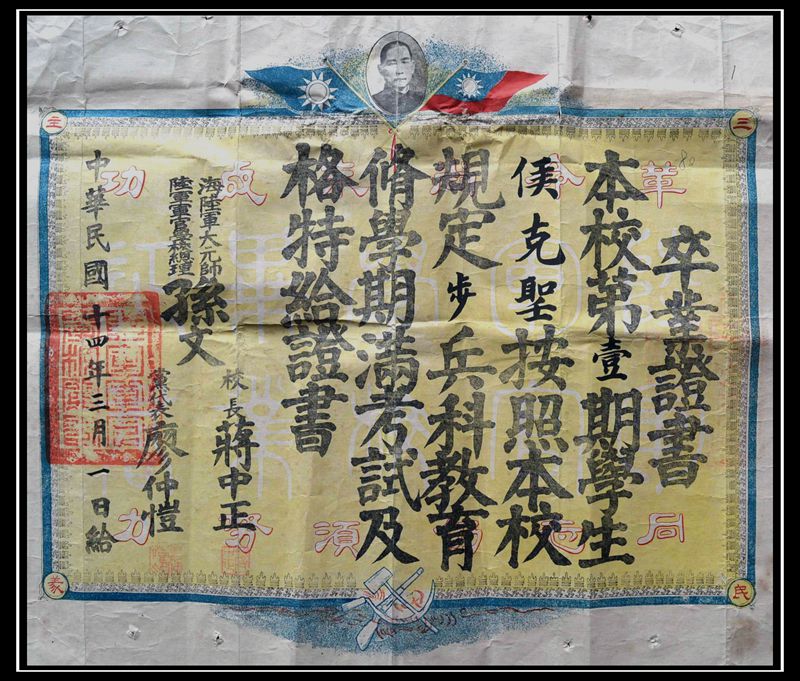 三
民
主
義
卒業證書
本校第壹期學生
侯克聖按照本校
規定步兵科教育
修學期滿考試及
格特給證書
海陸軍大元帥
陸軍軍官學校總理
孫文
校長 蔣中正
黨代表 廖仲愷
中華民國十四年三月一日給
革命尚未成功
同志仍須努力